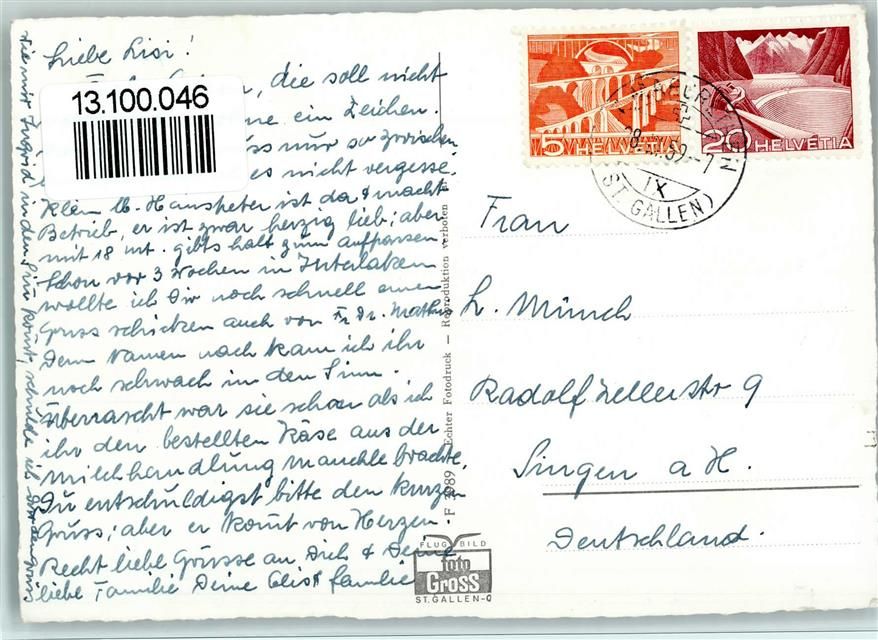 Liebe Lisi!
die soll nicht
ein Zeichen.
nur so zwischen
es nicht vergesse.
Klein lb. Hanspeter ist da & macht
Betrieb, er ist zwar herzig lieb; aber
mit 18 Mt. gibts halt zum aufpassen.
Schon vor 3 Wochen in Interlaken
wollte ich Dir noch schnell einen
Gruss schicken auch von Fr. Dr.
Dem Namen nach kam ich ihr
noch schwach in den Sinn.
Überrascht war sie schon als ich
ihr den bestellten Käse aus der
Milchhandlung brachte.
Du entschuldigst bitte den kurzen
Gruss; aber er komt von Herzen.
Recht liebe Grüsse an Dich & Deine
liebe Familie Deine & familie
die mir in den Sinn komt, schreibe ich
13.100.046
F Echter Fotodruck — Reproduktion verboten
FLUG BILD
foto
Gross
ST. GALLEN-O
5 HELVETIA
20 HELVETIA
IX
(ST. GALLEN)
Frau
L. Münch
Radolfzellerstr 9
Singen a H.
Deutschland.